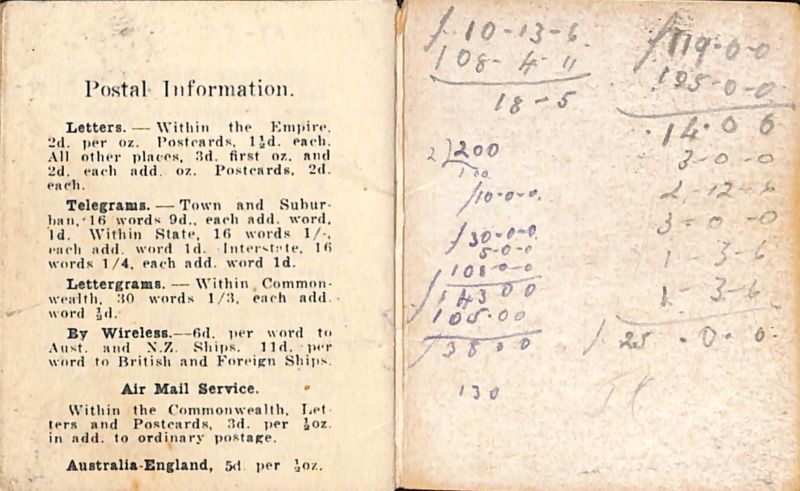 Postal Information.
Letters. — Within the Empire,
2d. per oz. Postcards, 1½d. each.
All other places, 3d. first oz. and
2d. each add. oz. Postcards, 2d.
each.
Telegrams. — Town and Subur-
ban, 16 words 9d., each add. word,
1d. Within State, 16 words 1/-,
each add. word 1d. Interstate, 16
words 1/4, each add. word 1d.
Lettergrams. — Within Common-
wealth, 30 words 1/3, each add.
word ½d.
By Wireless.—6d. per word to
Aust. and N.Z. Ships. 11d. per
word to British and Foreign Ships.
Air Mail Service.
Within the Commonwealth, Let-
ters and Postcards, 3d. per ½oz.
in add. to ordinary postage.
Australia-England, 5d per ½oz.
110-13-6
108-4-11
18-5
2)200
100
/10-0-0
/30-0-0
5-0-0
108-0-0
/143 0 0
105-00
/38 0 0
130
/119-0-0
105-0-0
14-0 0
3-0-0
2-12-6
3-0-0
1-3-6
1-3-6
/25-0-0